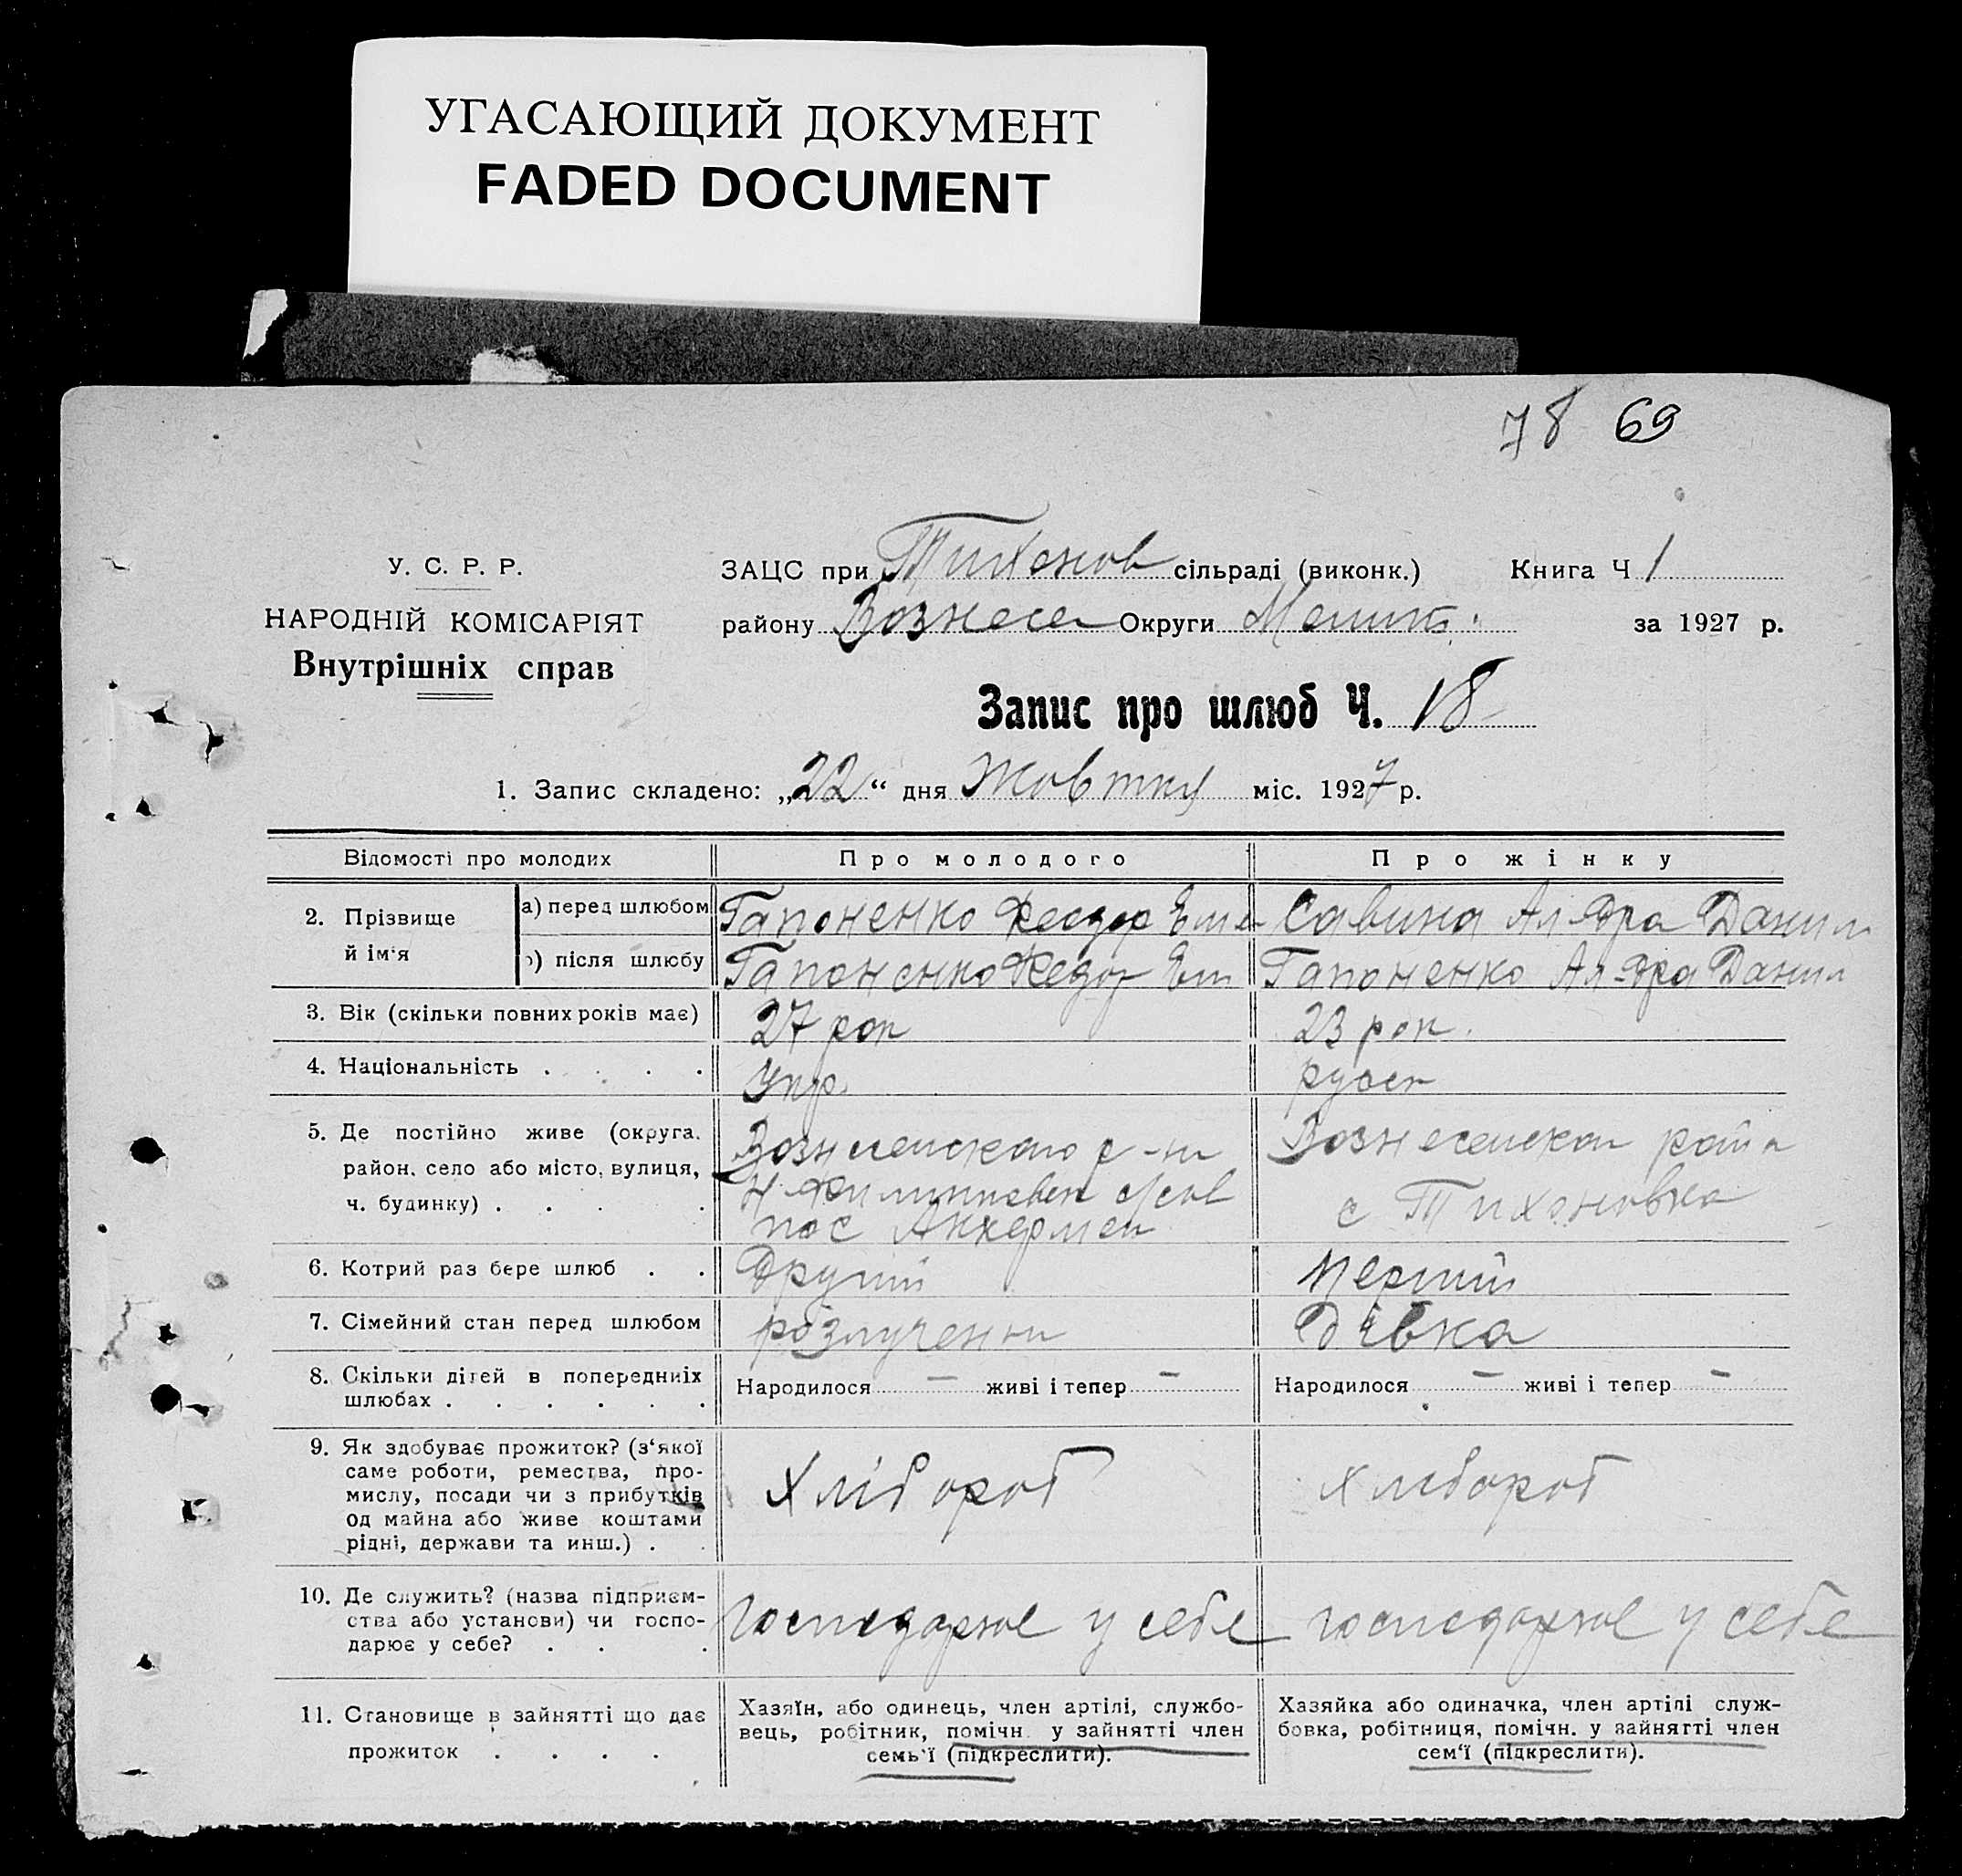 УГАСАЮЩИЙ ДОКУМЕНТ
FADED DOCUMENT
78 69
У. С. Р. Р.
НАРОДНІЙ КОМІСАРІЯТ
Внутрішніх справ
ЗАЦС при Тихонов сільраді (виконк.) Книга Ч 1
району Вознесен Округи Меліт. за 1927 р.
Запис про шлюб Ч. 18
1. Запис складено: „22“ дня Жовтня міс. 1927 р.
Відомості про молодих Про молодого Про жінку
2. Прізвище й ім‘я
а) перед шлюбом Гапоненко Федор Савина Ал-дра Данил
б) після шлюбу Гапоненко Федор Гапоненко Ал-дра Данил
3. Вік (скільки повних років має) 27 рок 23 рок.
4. Національність . . . . Укр. руск
5. Де постійно живе (округа, район, село або місто, вулиця, ч. будинку) . . . .
Вознесенского р-ну
Н Филиповск с/сов
пос Анкермен
Вознесенска райн
с Тихоновка
6. Котрий раз бере шлюб . . Другий Перший
7. Сімейний стан перед шлюбом розлучений Дівка
8. Скільки дітей в попередніх шлюбах . . . . . .
Народилося — живі і тепер — Народилося — живі і тепер —
9. Як здобуває прожиток? (з‘якої
саме роботи, ремества, про-
мислу, посади чи з прибутків
од майна або живе коштами
рідні, держави та инш.) . .
Хлібороб хлібороб
10. Де служить? (назва підприєм-
ства або установи) чи госпо-
дарює у себе? . . .
господарює у себе господарює у себе
11. Становище в зайнятті що дає
прожиток . . . .
Хазяїн, або одинець, член артілі, службо-
вець, робітник, помічн. у зайнятті член
семь‘ї (підкреслити).
Хазяйка або одиначка, член артілі служ-
бовка, робітниця, помічн. у зайнятті член
сем‘ї (підкреслити).